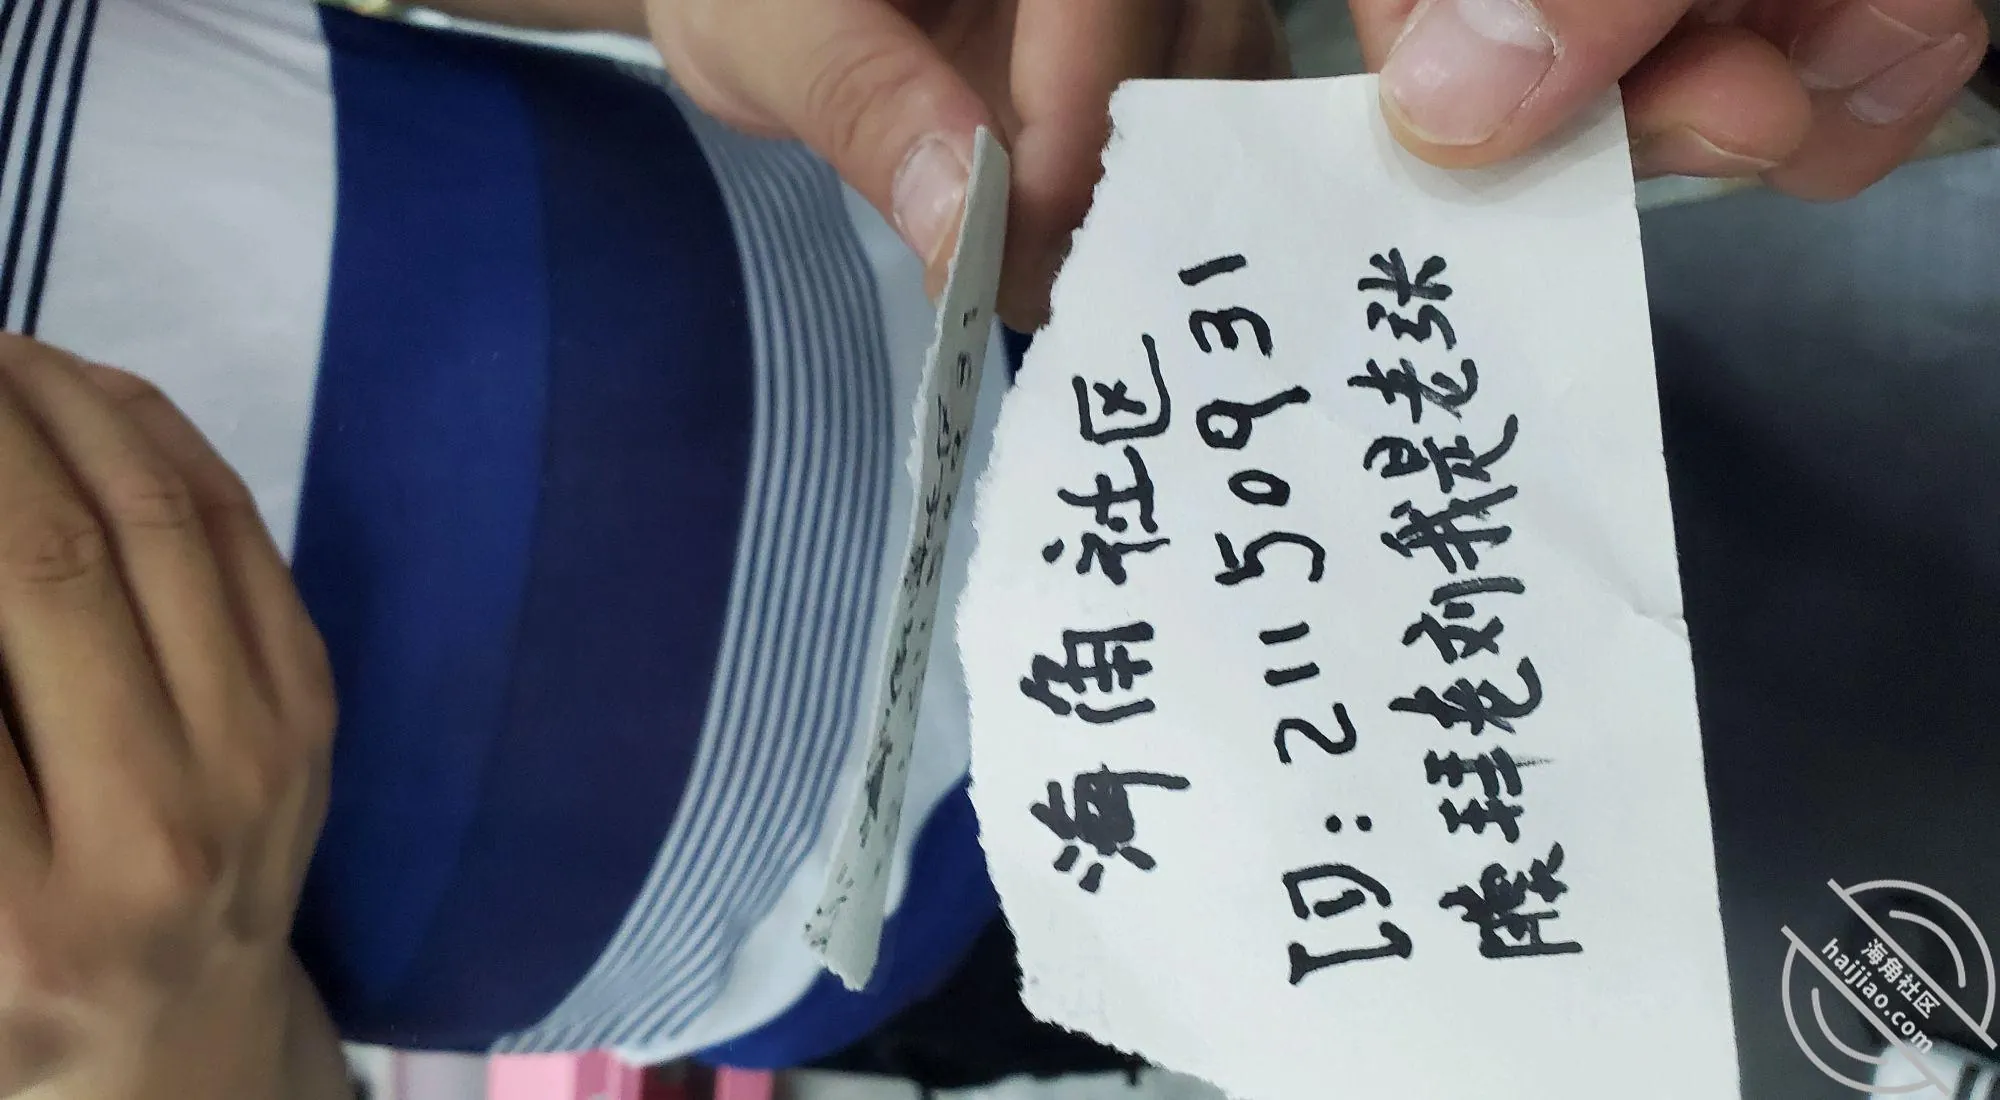 海角社区
ID: 21150931
隔壁老刘我是老张
海角社区
haijiao.com